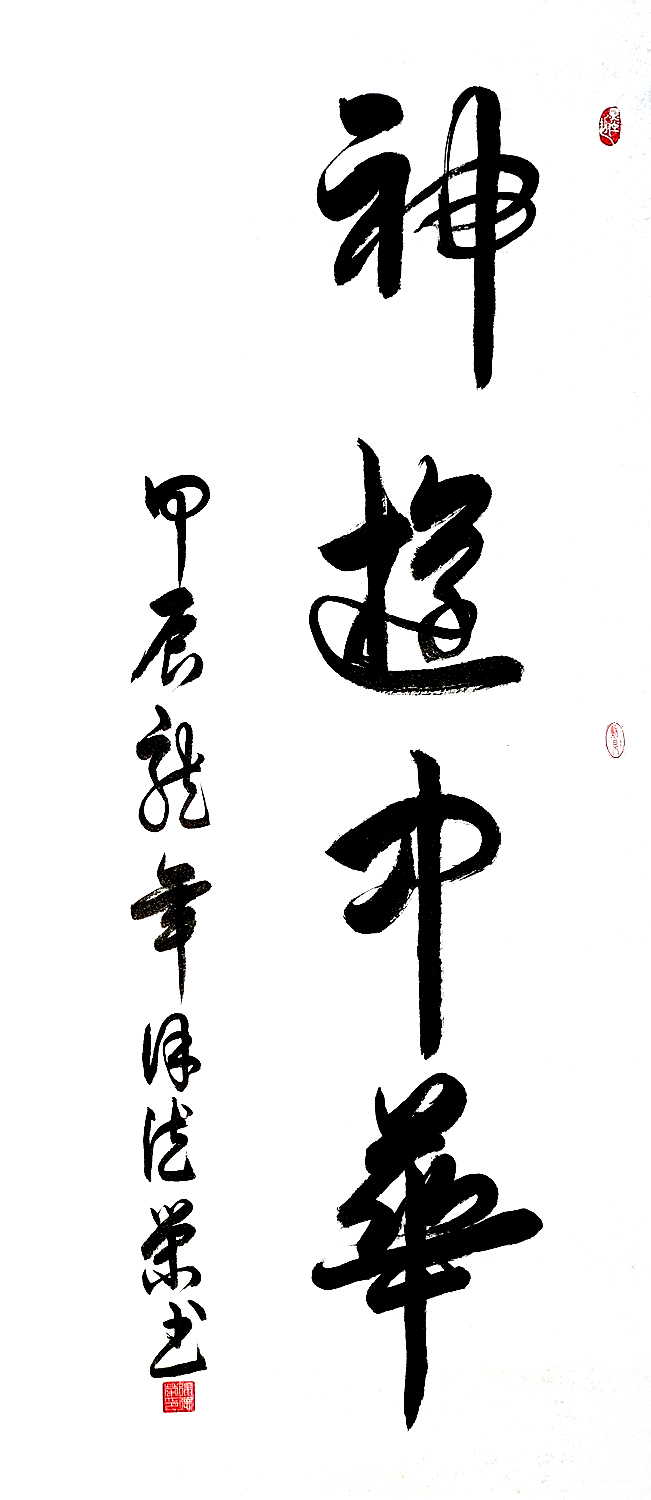 神遊中華
甲辰龍年陳德榮书